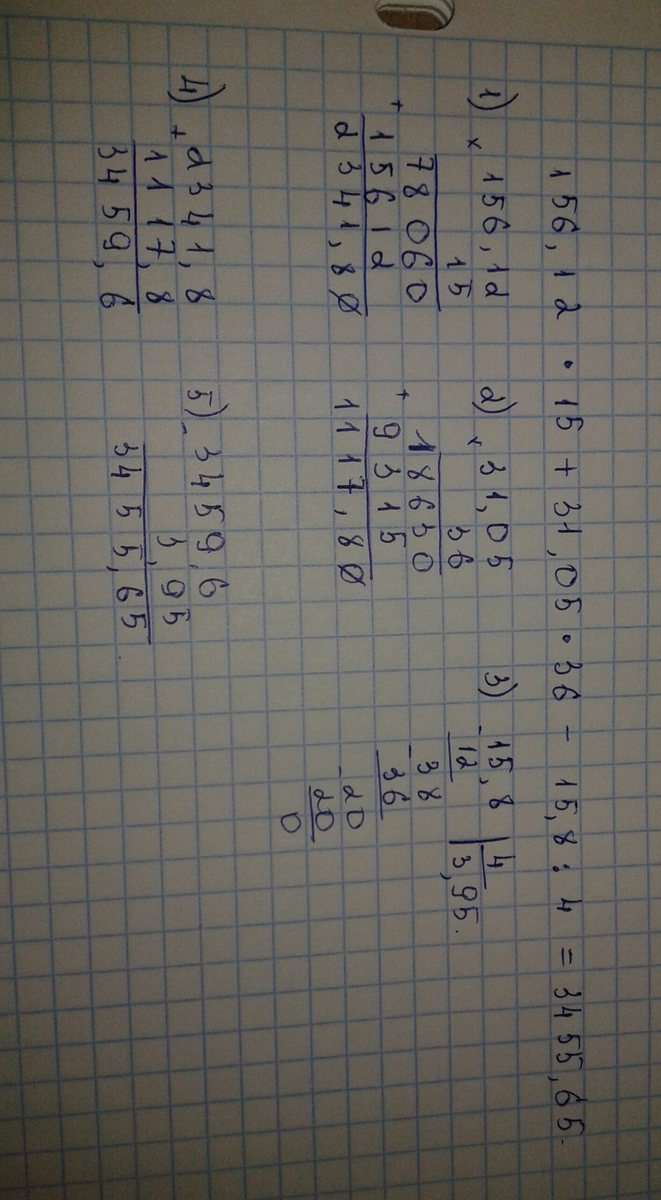 156,12 · 15 + 31,05 · 36 - 15,8 : 4 = 3455,65.
1) × 156,12
15
78060
+ 15612
2341,80
2) × 31,05
36
18630
+ 9315
1117,80
3) - 15,8 | 4
12 3,95.
- 38
36
- 20
20
0
4) + 2341,8
1117,8
3459,6
5) - 3459,6
3,95
3455,65.